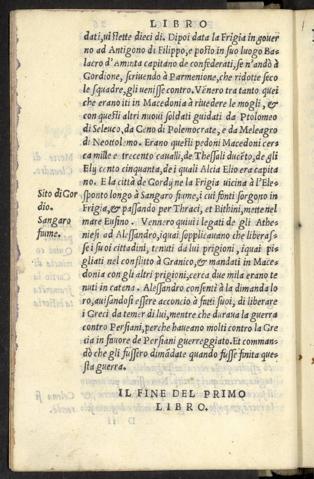 LIBRO
dati, ui stette dieci dì. Dipoi data la Frigia in gouer
no ad Antigono di Filippo, e posto in suo luogo Ba-
lacro d'Aminta capitano de confederati, se n'andò à
Gordione, scriuendo à Parmenione, che ridotte seco
le squadre, gli uenisse contro. Vẽnero tra tanto quei
che erano iti in Macedonia à riuedere le mogli, &
con questi altri nuoui soldati guidati da Ptolomeo
di Seleuco, da Ceno di Polemocrate, e da Meleagro
di Neottolmo. Erano questi pedoni Macedoni cer
ca mille e trecento caualli, de Thessali ducẽto, de gli
Ely cento cinquanta, de i quali Alcia Elio era capita
no. E la città de Gordỹ ne la Frigia uicina à l'Ele-
sponto longo à Sangaro fiume, i cui fonti sorgono in
Frigia, & passando per Thraci, et Bithini, mette nel
mare Eusino. Vennero quiui legati de gli Athe
niesi ad Alessandro, iquai supplicauano che liberas-
se i suoi cittadini, tenuti da lui prigioni, iquai pi-
gliati nel conflitto à Granico, & mandati in Mace-
donia con gli altri prigioni, cerca due mila erano te
nuti in catena. Alessandro consentì à la dimanda lo
ro, auisandosi essere acconcio à fatti suoi, di liberare
i Greci da temer di lui, mentre che duraua la guerra
contro Persiani, perche haueano molti contro la Gre
cia in fauore de Persiani guerreggiato. Et comman-
dò che gli fussero dimãdate quando fusse finita que-
sta guerra.
Sito di Gor
dio.
Sangaro
fiume.
IL FINE DEL PRIMO
LIBRO.